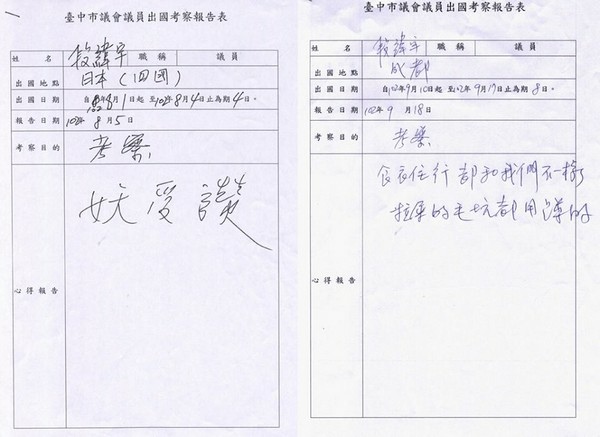 臺中市議會議員出國考察報告表
姓名 段緯宇 職稱 議員
出國地點 日本(四國)
出國日期 自 年8月1日起至102年8月4日止為期4日。
報告日期 102年8月5日
考察目的 考察
心得報告
妖受讚
臺中市議會議員出國考察報告表
姓名 段緯宇 職稱 議員
出國地點 成都
出國日期 自102年9月10日起至102年9月17日止為期8日。
報告日期 102年9月18日
考察目的 考察
心得報告
食衣住行都和我們不一樣
拉屎的毛坑都用蹲的